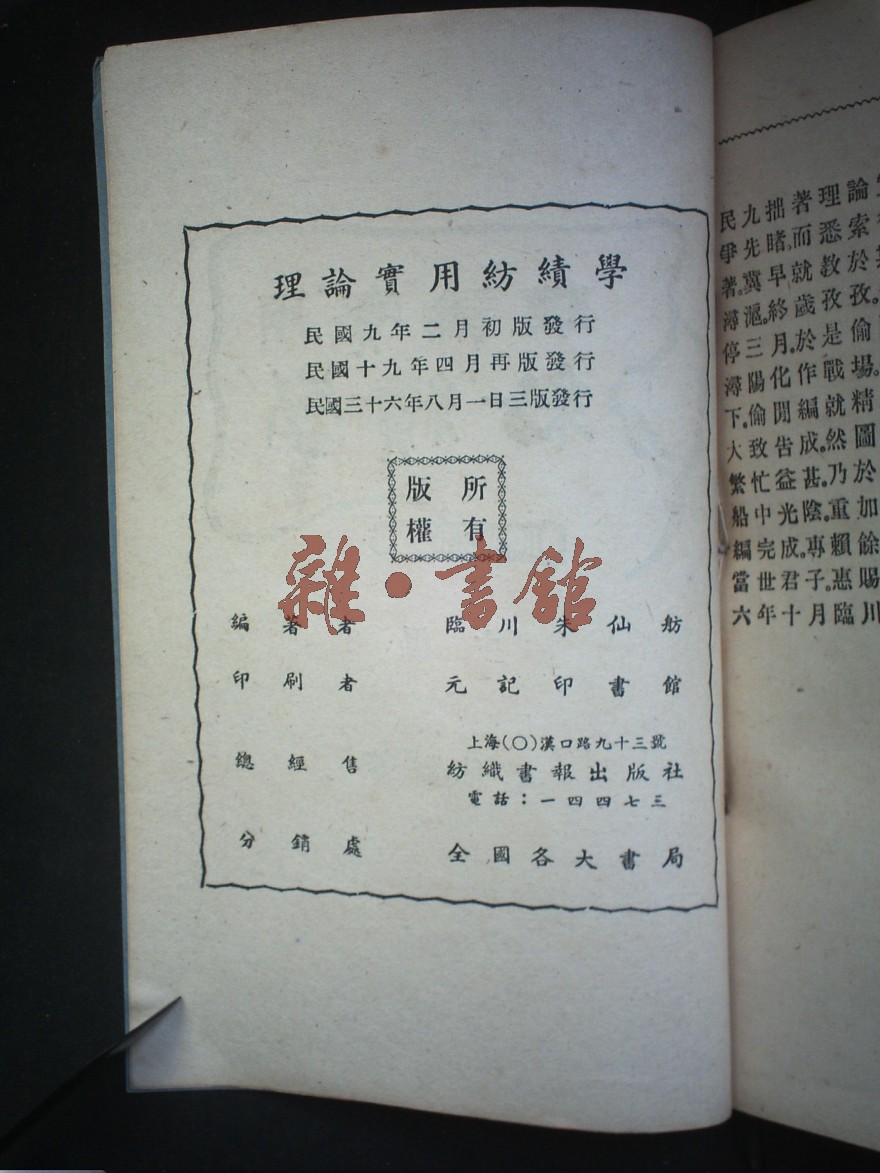 理論實用紡績學
民國九年二月初版發行
民國十九年四月再版發行
民國三十六年八月一日三版發行
版 所
權 有
雜·書館
編著者 臨川朱仙舫
印刷者 元記印書館
上海(〇)漢口路九十三號
總經售 紡織書報出版社
電話：一四四七三
分銷處 全國各大書局
民九拙著理論
爭先睹。而悉索
著。冀早就教於
潯滬。終歲孜孜。
停三月。於是偷
潯陽化作戰場。
下。偷閒編就精
大致告成。然圖
繁忙益甚。乃於
船中光陰。重加
編完成。專賴餘
當世君子。惠賜
六年十月臨川